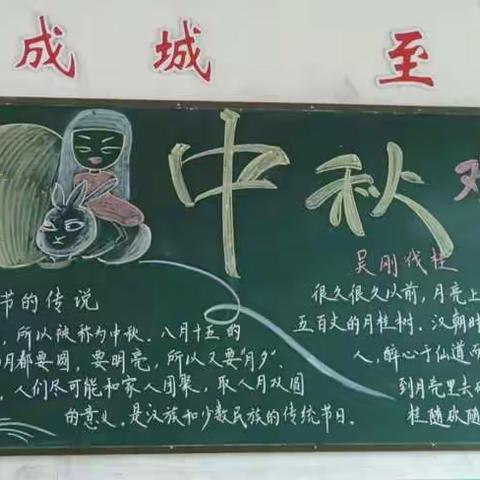 成城 至
中秋
节的传说
，所以被称为中秋．八月十五的
月都要圆，要明亮，所以又要"月夕"．
，人们尽可能和家人团聚，取人月双圆
的意义．是汉族和少数民族的传统节日．
吴刚伐桂
很久很久以前，月亮上
五百丈的月桂树．汉朝时
人，醉心于仙道而
到月亮里去砍
桂随砍随